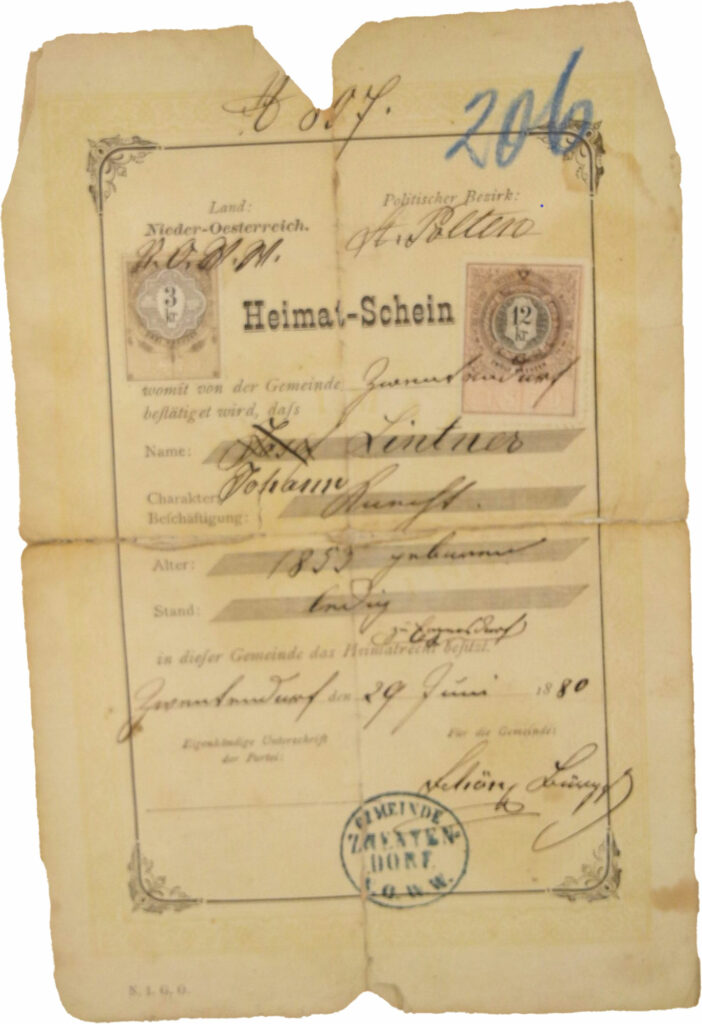 № 807.
206
Land:
Nieder-Oesterreich.
V. O. W. W.
Politischer Bezirk:
St. Pölten
3
kr.
12
kr.
Heimat-Schein
womit von der Gemeinde Zwentendorf
beſtätiget wird, daſs
Name: Josef Lintner
Johann
Charakter
Beſchäftigung: Knecht.
Alter: 1853 geboren
Stand: ledig
in dieſer Gemeinde das Heimatrecht beſitzt.
Zwentendorf den 29 Juni 1880
Eigenhändige Unterschrift
der Partei:
Für die Gemeinde:
GEMEINDE
ZWENTEN-
DORF
O. W. W.
N. I. G. O.